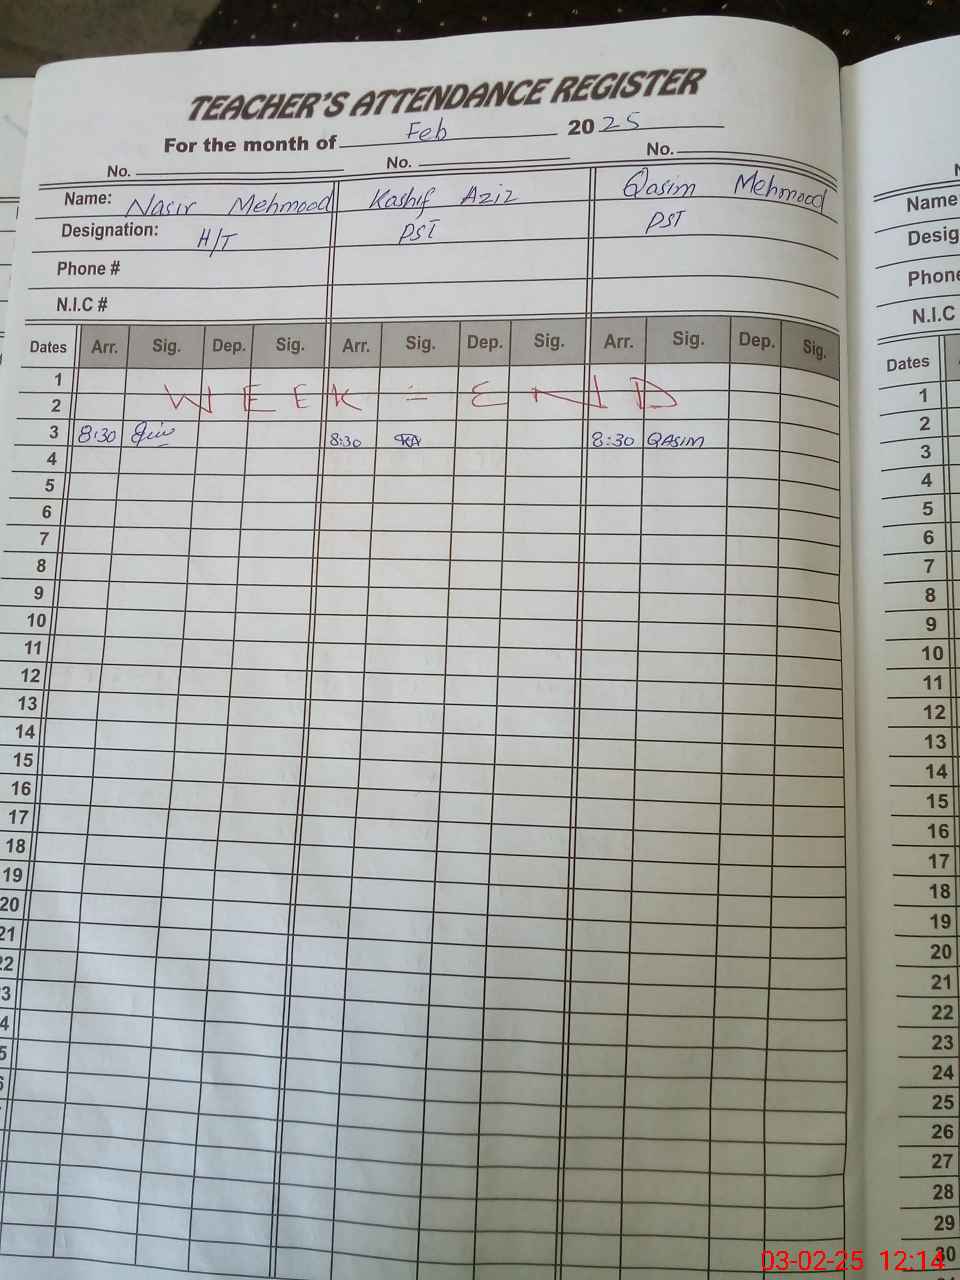 TEACHER'S ATTENDANCE REGISTER
For the month of Feb 20 25
No. No. No.
Name: Nasir Mehmood Kashif Aziz Qasim Mehmood
Designation: H/T PST PST
Phone #
N.I.C #
Dates Arr. Sig. Dep. Sig. Arr. Sig. Dep. Sig. Arr. Sig. Dep. Sig.
1
WEEK-END
2
3 8:30 8:30 KA 8:30 QASIM
4
5
6
7
8
9
10
11
12
13
14
15
16
17
18
19
20
21
22
3
4
5
6
Name
Desig
Phone
N.I.C
Dates
1
2
3
4
5
6
7
8
9
10
11
12
13
14
15
16
17
18
19
20
21
22
23
24
25
26
27
28
29
30
03-02-25 12:14